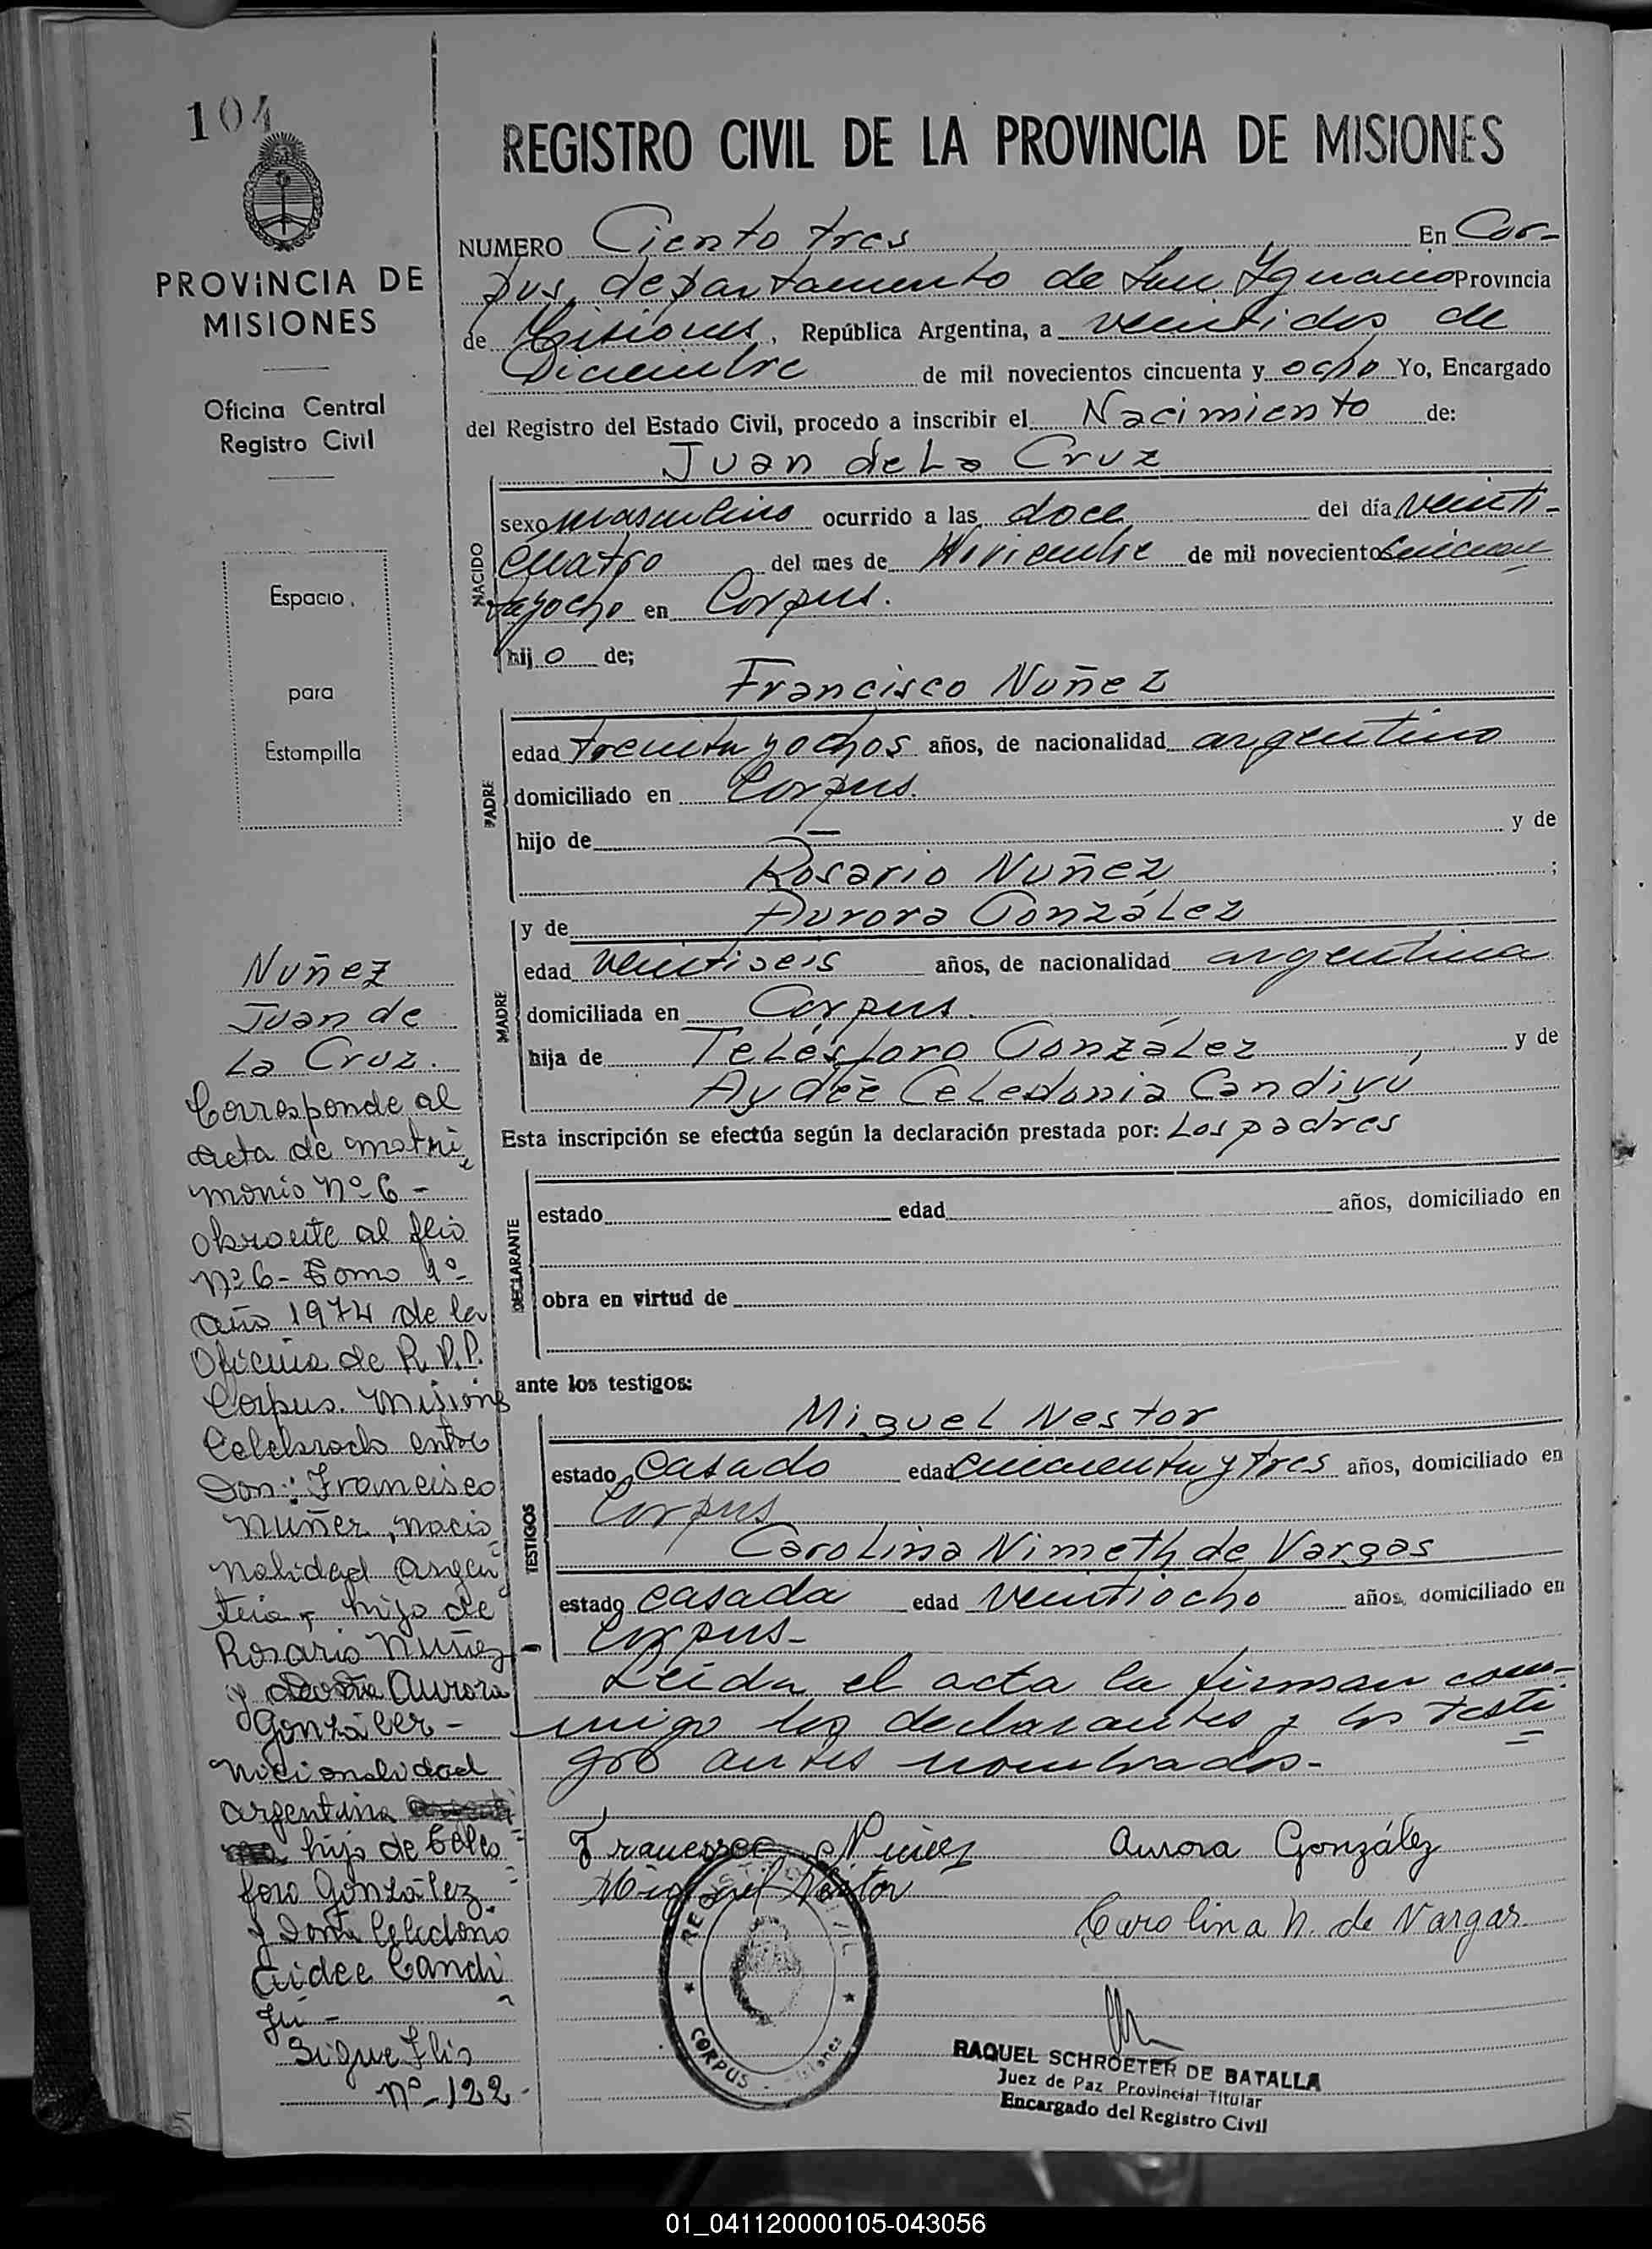 104
PROVINCIA DE
MISIONES
Oficina Central
Registro Civil
Espacio
para
Estampilla
Nuñez
Juan de
La Cruz.
Corresponde al
acta de matri
monio Nº 6 -
obrante al flio
Nº 6 - Tomo 1º
año 1974 de la
Oficina de R.P.P.
Corpus. Misiones
Celebrado entre
Don: Francisco
Nuñez, nacio
nalidad argen
tina, hijo de
Rosario Nuñez
y Aurora
González -
nacionalidad
argentina
hija de Teles
foro González
y Doña Celedonia
Aidee Candi
yú -
Sigue Flio
Nº - 122 -
REGISTRO CIVIL DE LA PROVINCIA DE MISIONES
NUMERO Ciento tres En Cor-
pus, departamento de San Ygnacio Provincia
de Misiones, República Argentina, a veintidos de
Diciembre de mil novecientos cincuenta y ocho Yo, Encargado
del Registro del Estado Civil, procedo a inscribir el Nacimiento de:
Juan de La Cruz
NACIDO
sexo masculino ocurrido a las doce del día veinti-
cuatro del mes de Noviembre de mil novecientos cincuen
ta y ocho en Corpus.
hijo de;
Francisco Nuñez
PADRE
edad treinta y ochos años, de nacionalidad argentino
domiciliado en Corpus.
hijo de — y de
Rosario Nuñez ;
y de Aurora González
MADRE
edad veintiseis años, de nacionalidad argentina
domiciliada en Corpus.
hija de Telésforo González, y de
Aydeé Celedonia Candiyú
Esta inscripción se efectúa según la declaración prestada por: Los padres
DECLARANTE
estado edad años, domiciliado en
obra en virtud de
ante los testigos:
Miguel Nestor
TESTIGOS
estado Casado edad cincuenta y tres años, domiciliado en
Corpus
Carolina Nimeth de Vargas
estado casada edad veintiocho años, domiciliado en
Corpus-
Leida el acta la firman con-
migo los declarantes y los testi
gos antes nombrados.-
Francisco Nuñez Aurora González
Miguel Nestor
Carolina N. de Vargas
REGISTRO CIVIL
CORPUS - Misiones
RAQUEL SCHROETER DE BATALLA
Juez de Paz Provincial Titular
Encargado del Registro Civil
01_041120000105-043056